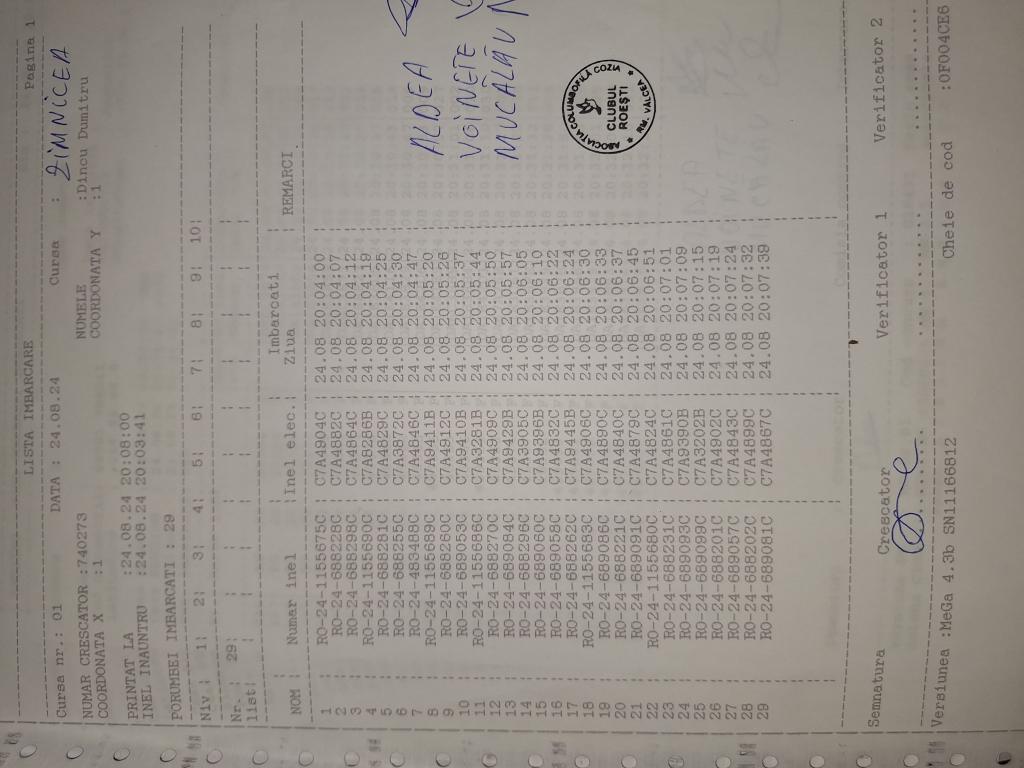 LISTA IMBARCARE Pagina 1
Cursa nr.: 01 DATA : 24.08.24 Cursa : ZIMNICEA
NUMAR CRESCATOR :740273 NUMELE :Dincu Dumitru
COORDONATA X :1 COORDONATA Y :1
PRINTAT LA :24.08.24 20:08:00
INEL INAUNTRU :24.08.24 20:03:41
PORUMBEI IMBARCATI : 29
Niv.¦ 1¦ 2¦ 3¦ 4¦ 5¦ 6¦ 7¦ 8¦ 9¦ 10¦
Nr. ¦ 29¦
list¦
Imbarcati
NOM ¦ Numar inel ¦Inel elec.¦ Ziua ¦ REMARCI
1 ¦ RO-24-1155675C ¦ C7A4904C ¦ 24.08 20:04:00
2 ¦ RO-24-688228C ¦ C7A4882C ¦ 24.08 20:04:07
3 ¦ RO-24-688298C ¦ C7A4864C ¦ 24.08 20:04:12
4 ¦ RO-24-1155690C ¦ C7A8286B ¦ 24.08 20:04:19
5 ¦ RO-24-688281C ¦ C7A4829C ¦ 24.08 20:04:25
6 ¦ RO-24-688255C ¦ C7A3972C ¦ 24.08 20:04:30
7 ¦ RO-24-489488C ¦ C7A4846C ¦ 24.08 20:04:47
8 ¦ RO-24-1155689C ¦ C7A9411B ¦ 24.08 20:05:20
9 ¦ RO-24-688260C ¦ C7A4912C ¦ 24.08 20:05:26
10 ¦ RO-24-689053C ¦ C7A9410B ¦ 24.08 20:05:37
11 ¦ RO-24-1155686C ¦ C7A3261B ¦ 24.08 20:05:44
12 ¦ RO-24-688270C ¦ C7A4909C ¦ 24.08 20:05:50
13 ¦ RO-24-689084C ¦ C7A9429B ¦ 24.08 20:05:57
14 ¦ RO-24-688296C ¦ C7A3905C ¦ 24.08 20:06:05
15 ¦ RO-24-689060C ¦ C7A9386B ¦ 24.08 20:06:10
16 ¦ RO-24-689058C ¦ C7A4832C ¦ 24.08 20:06:22
17 ¦ RO-24-688262C ¦ C7A9445B ¦ 24.08 20:06:24
18 ¦ RO-24-1155683C ¦ C7A4906C ¦ 24.08 20:06:30
19 ¦ RO-24-689086C ¦ C7A4890C ¦ 24.08 20:06:33
20 ¦ RO-24-688221C ¦ C7A4840C ¦ 24.08 20:06:37
21 ¦ RO-24-689091C ¦ C7A4879C ¦ 24.08 20:06:45
22 ¦ RO-24-1155680C ¦ C7A4824C ¦ 24.08 20:06:51
23 ¦ RO-24-688231C ¦ C7A4861C ¦ 24.08 20:07:01
24 ¦ RO-24-689093C ¦ C7A9390B ¦ 24.08 20:07:09
25 ¦ RO-24-689099C ¦ C7A3202B ¦ 24.08 20:07:15
26 ¦ RO-24-688201C ¦ C7A4902C ¦ 24.08 20:07:19
27 ¦ RO-24-689057C ¦ C7A4843C ¦ 24.08 20:07:24
28 ¦ RO-24-688202C ¦ C7A4899C ¦ 24.08 20:07:32
29 ¦ RO-24-689081C ¦ C7A4867C ¦ 24.08 20:07:39
ALDEA
VOINETE
MUCĂLĂU
ASOCIAȚIA COLUMBOFILĂ COZIA
CLUBUL
ROEȘTI
* RM. VÂLCEA *
Semnatura Crescator Verificator 1 Verificator 2
Versiunea :MeGa 4.3b SN11166812 Cheie de cod :0F004CE6